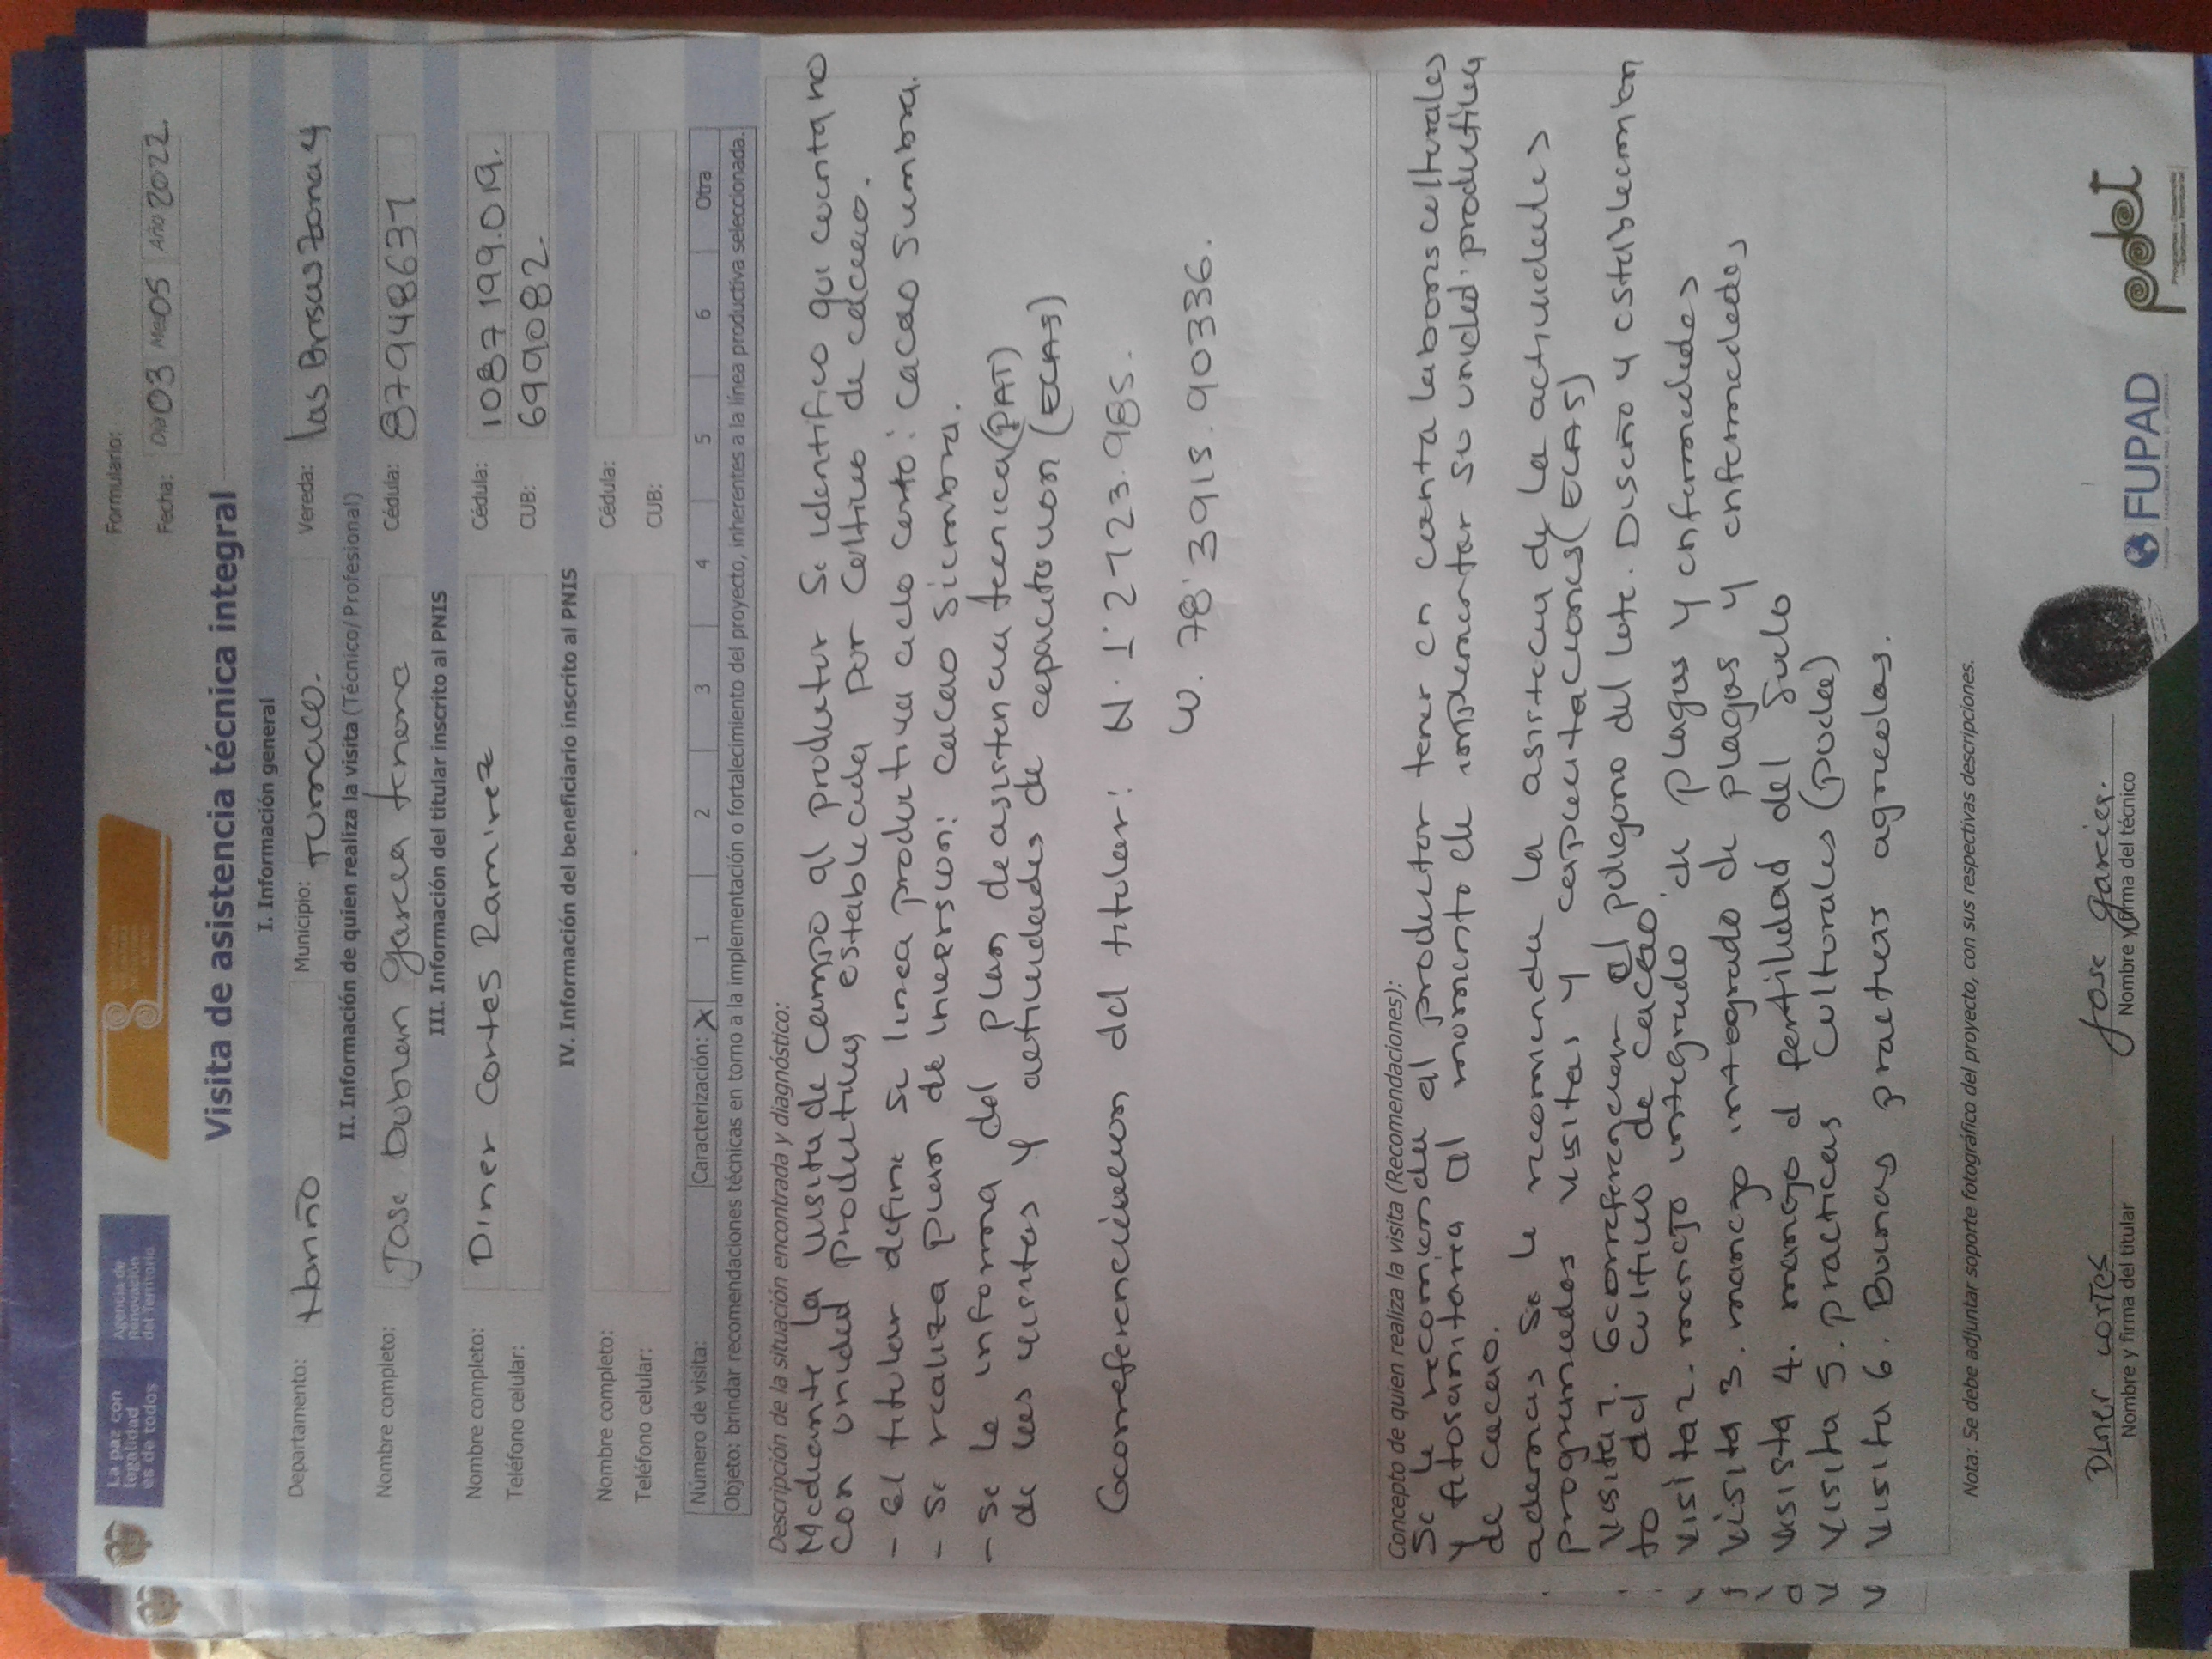 La paz con
legalidad
es de todos
Agencia de
Renovación
del Territorio
Formulario:
Fecha: Día 03 Mes 05 Año 2022
Visita de asistencia técnica integral
I. Información general
Departamento: Nariño Municipio: Tumaco. Vereda: las Brisas zona 4
II. Información de quien realiza la visita (Técnico/ Profesional)
Nombre completo: Jose Duban Garcia Cédula: 879486371
III. Información del titular inscrito al PNIS
Nombre completo: Diner Cortes Ramirez Cédula: 1087199.019.
Teléfono celular: CUB: 699082.
IV. Información del beneficiario inscrito al PNIS
Nombre completo: Cédula:
Teléfono celular: CUB:
Número de visita: Caracterización: X 1 2 3 4 5 6 Otra
Objeto: brindar recomendaciones técnicas en torno a la implementación o fortalecimiento del proyecto, inherentes a la línea productiva seleccionada.
Descripción de la situación encontrada y diagnóstico:
Mediante la visita de campo al productor se identifico que cuenta no
con unidad productiva establecida por cultivo de cacao.
- el titular define su linea productiva ciclo corto: cacao siembra.
- se realiza plan de inversion: cacao siembra.
- se le informa del plan de asistencia tecnica (PAT)
de las visitas y actividades de capacitacion (ECAS)
Georreferenciacion del titular: N. 1° 27 23.985.
W. 78° 3913.90336.
Concepto de quien realiza la visita (Recomendaciones):
Se le recomienda al productor tener en cuenta labores culturales
y fitosanitaria al momento de implementar su unidad productiva
de cacao.
ademas se le recomienda la asistecia de la actividades
programadas visitas y capacitaciones (ECAS)
visita 1. Georreferenciar el poligono del lote. Diseño y establecimien
to del cultivo de cacao
visita 2. manejo integrado de plagas y enfermedades
visita 3. manejo integrado de plagas y enfermedades
visista 4. manejo d fertilidad del suelo
visita 5. practicas culturales (poda)
visita 6. Buenas practicas agricolas.
Nota: Se debe adjuntar soporte fotográfico del proyecto, con sus respectivas descripciones.
Diner cortes
Nombre y firma del titular
Jose Garcia.
Nombre y firma del técnico
FUPAD
pdet